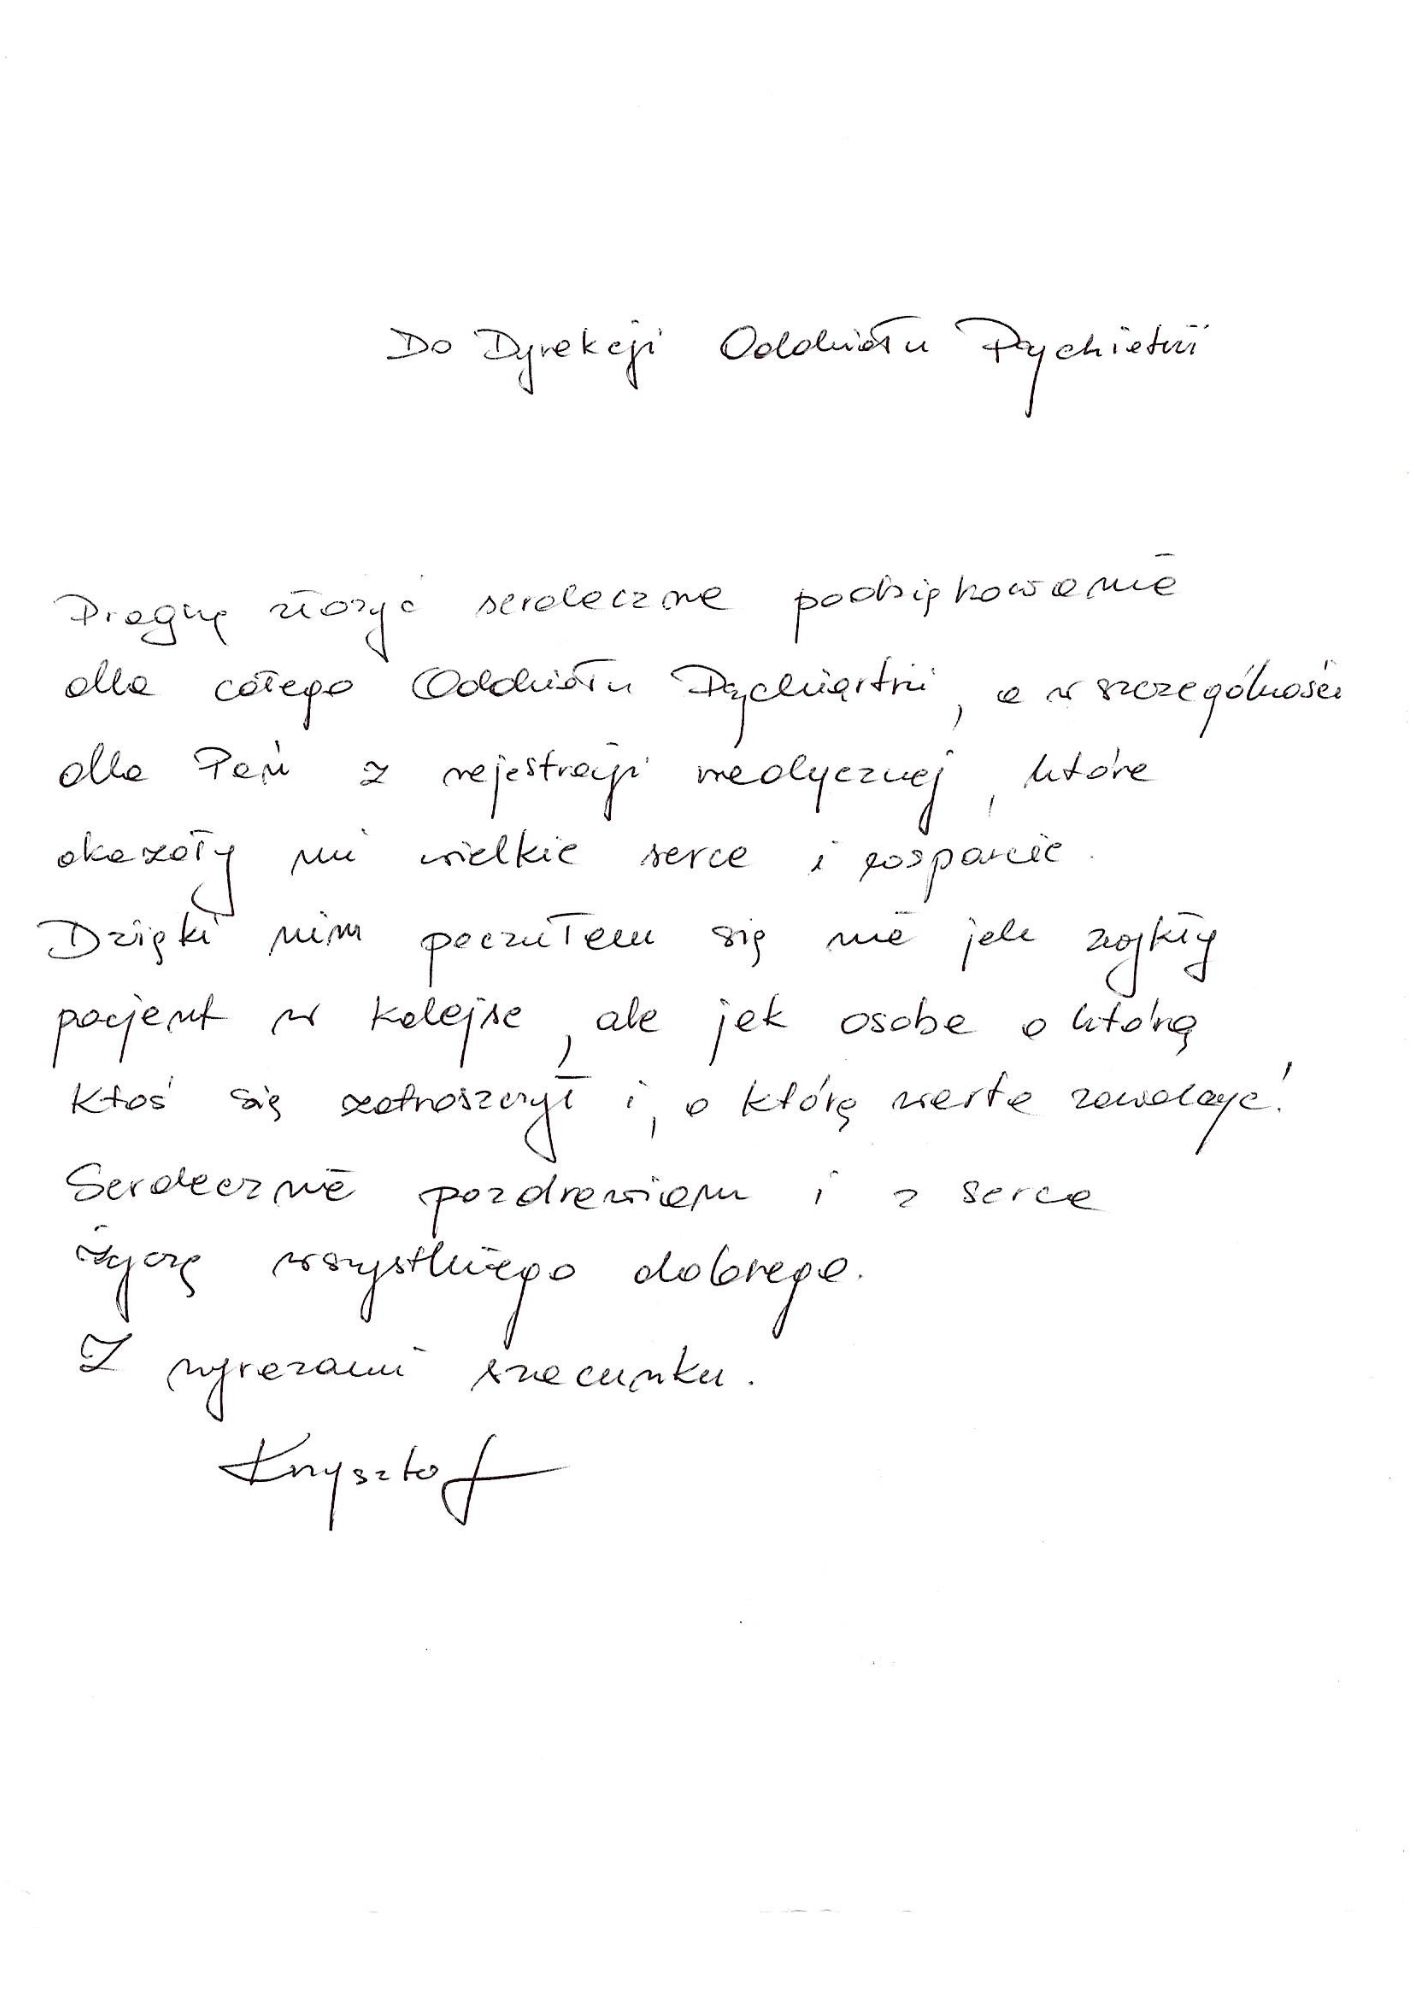 Do Dyrekcji Oddziału Psychiatrii
Pragnę złożyć serdeczne podziękowanie
dla całego Oddziału Psychiatrii, a w szczególności
dla Pań z rejestracji medycznej, które
okazały mi wielkie serce i wsparcie.
Dzięki nim poczułem się nie jak zwykły
pacjent w kolejce, ale jak osoba o którą
ktoś się zatroszczył i, o którą warto zawalczyć!
Serdecznie pozdrawiam i z serca
życzę wszystkiego dobrego.
Z wyrazami szacunku.
Krzysztof